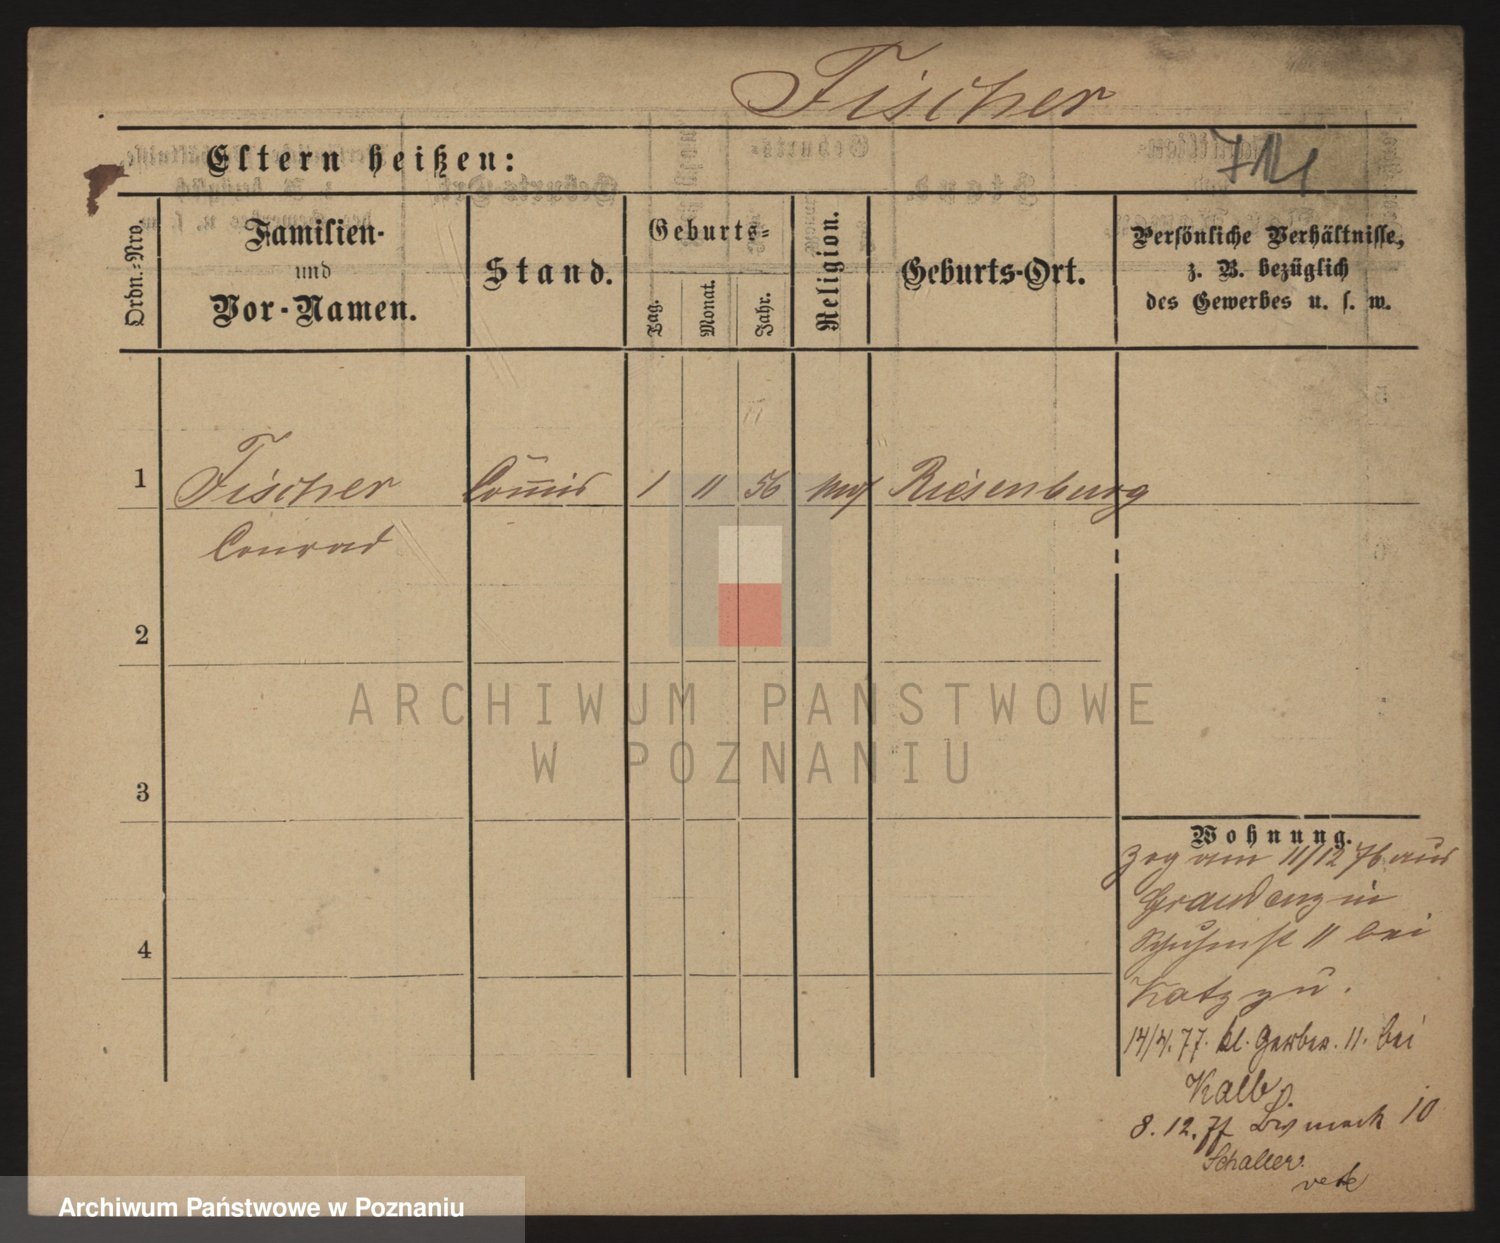 Fischer
Eltern heißen:
Ordn.-Nro.
Familien-
und
Vor-Namen.
Stand.
Geburts-
Tag.
Monat.
Jahr.
Religion.
Geburts-Ort.
Persönliche Verhältnisse,
z. B. bezüglich
des Gewerbes u. s. w.
1
Fischer Commis 1 11 56 Riesenburg
Conrad
2
3
4
ARCHIWUM PAŃSTWOWE
W POZNANIU
Wohnung.
Zog am 11/12 76 aus
Graudenz in
11 bei
Katz zu.
14/4. 77. kl. Gerber. 11. bei
Kalb.
8. 12. 77 Bismarck 10
Schaller.
Archiwum Państwowe w Poznaniu